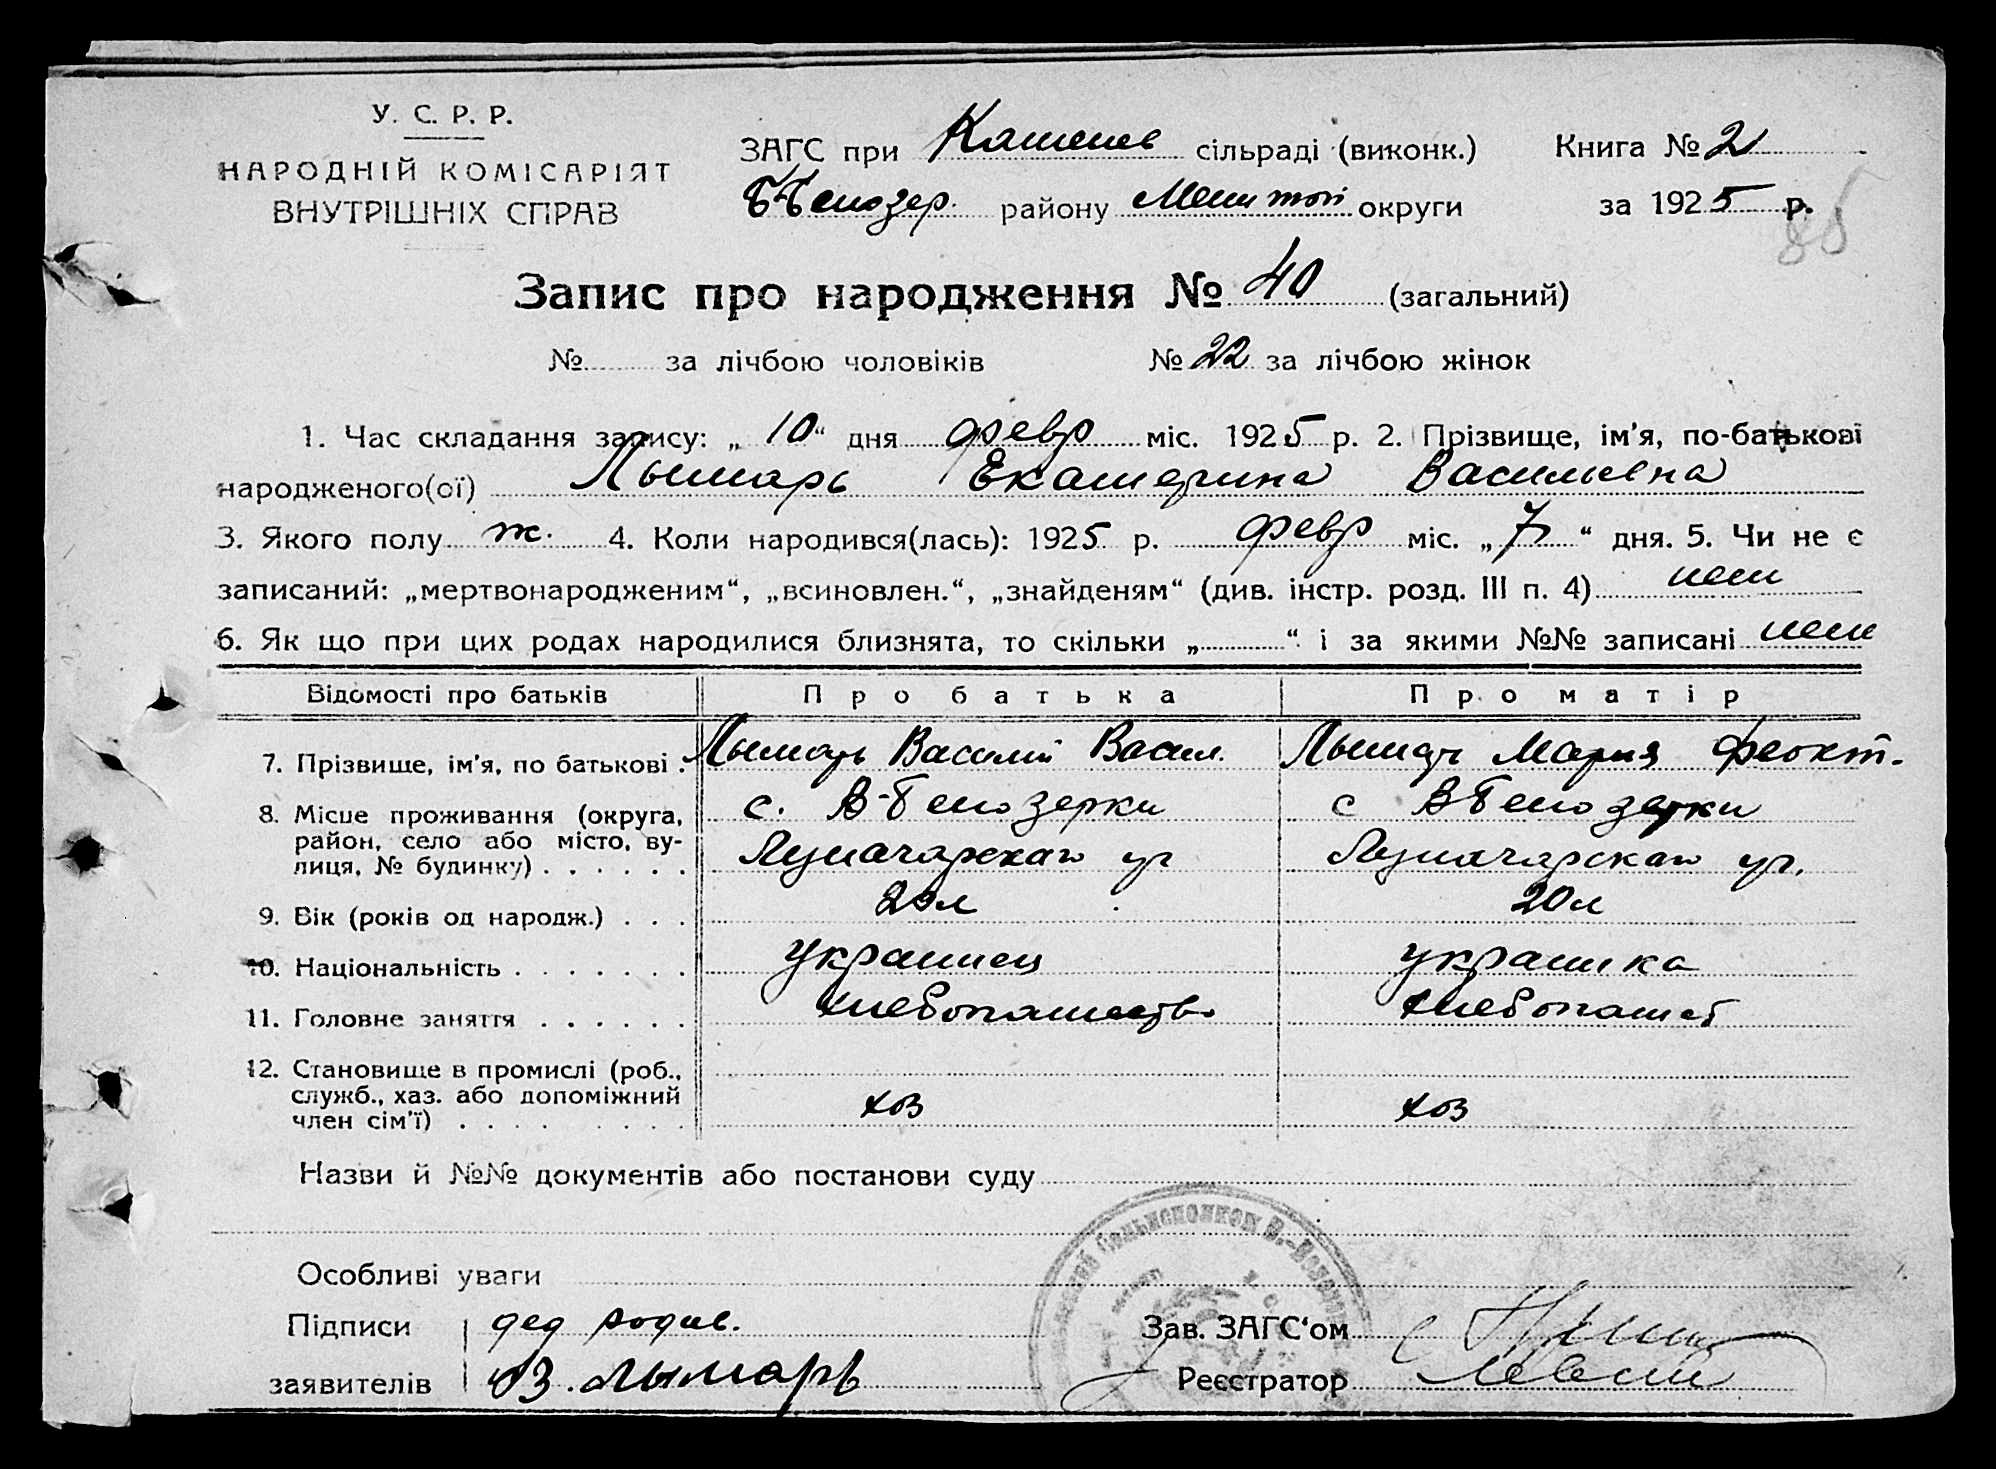 У. С. Р. Р.
НАРОДНІЙ КОМІСАРІЯТ
ВНУТРІШНІХ СПРАВ
ЗАГС при сільраді (виконк.) Книга № 2
району округи за 1925 р.
85
Запис про народження № 40 (загальний)
№ за лічбою чоловіків № 22 за лічбою жінок
1. Час складання запису: „ 10 “ дня февр міс. 1925 р. 2. Прізвище, ім'я, по-батькові
народженого(ої) Лымарь Екатерина Васильевна
3. Якого полу ж. 4. Коли народився(лась): 1925 р. февр міс. „ 7 “ дня. 5. Чи не є
записаний: „мертвонародженим“, „всиновлен.“, „знайденям“ (див. інстр. розд. III п. 4) нет
6. Як що при цих родах народилися близнята, то скільки „ “ і за якими №№ записані нет
Відомості про батьків Про батька Про матір
7. Прізвище, ім'я, по батькові . Лымарь Василий Васил. Лымарь Мария Феокт.
8. Місце проживання (округа, с. В-Белозерки с В Белозерки
район, село або місто, ву-
лиця, № будинку) . . . . . . Луначарская ул Луначарская ул.
9. Вік (років од народж.) . . . 20л 20л
10. Національність . . . . . . . украинец украинка
11. Головне заняття . . . . . . хлебопашество хлебопашест
12. Становище в промислі (роб.,
служб., хаз. або допоміжний
член сім'ї) . . . . . . . . хоз хоз
Назви й №№ документів або постанови суду
Особливі уваги
Підписи дед Зав. ЗАГС'ом
заявителів Лымарь Реєстратор